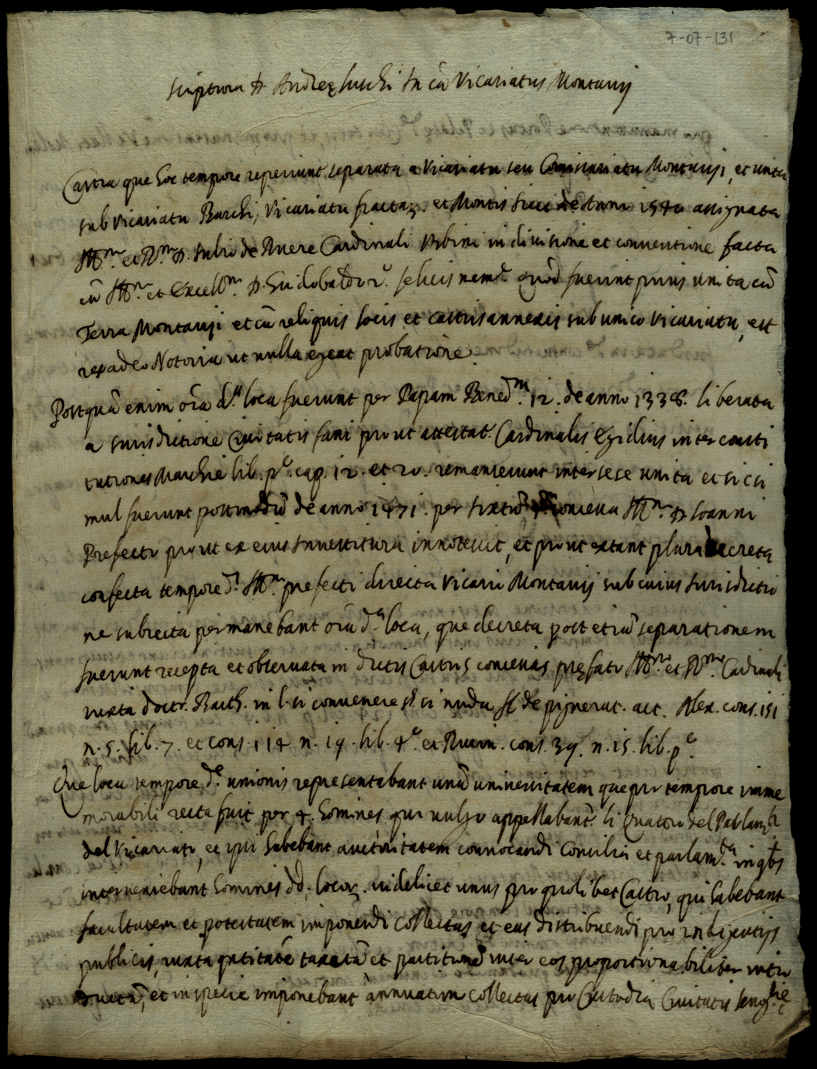 7-07-131
scriptura D. Andreę in cã Vicariatus Montavij
Castra que hoc tempore reperiunt separata a Vicariatu seu Montavij, et unita
sub Vicariatu Barchi, Vicariatu fractaꝝ. et Montis de Anno 1540 assignata
Ill.mo et R.mo D. Iulio de Ruere Cardinali Urbini in divisione et conventione facta
cũ Ill.mo et Excell.mo D. Guidobaldo felicis mem.e quod fuerint prius unita cũ
Terra Montavij et cũ reliquis locis et castris annexis sub unico Vicariatu, est
res adeo Notoria ut nulla egeat probatione.
Postquã enim oĩa d.a loca fuerunt per Papam Bened.m 12. de anno 1338. liberata
a Iurisdictione Civitatis fani prout attestat.r Cardinalis Egidius inter consti
tutiones Marchie lib. p.o cap. 12. et 20. remanserunt inter sese unita et sic si
mul fuerunt postmodũ de anno 1471. per Ill.mo D. Ioanni
Prefecto prout ex eius Investitura innotescit, et prout extant plura decreta
confecta tempore d.i Ill.mi prefecti directa Vicario Montavij sub cuius Iurisdictio
ne subiecta permanebant oĩa d.a loca, que decreta post etiã separationem
fuerunt recepta et observata in dictis Castris pręfato Ill.mo et R.mo Cardinali
iuxta doctr. Barth. in l. si convenerit si nuda ff. de pignerat. act. Alex. cons. 151
n. 5. lib. 7. et cons. 114 n. 19. lib. 4.o et Ruin. cons. 39. n. 15. lib. p.o
Que loca tempore d.e unionis representabant unã universitatem que pro tempore imme
morabili recta fuit per 4. homines qui vulgo appellabant.r li Quatro del Parlam.to
del Vicariato, et ipsi habebant auctoritatem convocandi Consilia et parlam.ta in qbs
interveniebant homines dd. locoꝝ. videlicet unus pro quolibet Castro, qui habebant
facultatem et potestatem imponendi collectas et eas distribuendi pro
publicis, iuxta qntitatẽ taxatã et partitũ inter eos proportionabiliter
et in specie imponebant annuatim collectas pro Custodia Civitatis